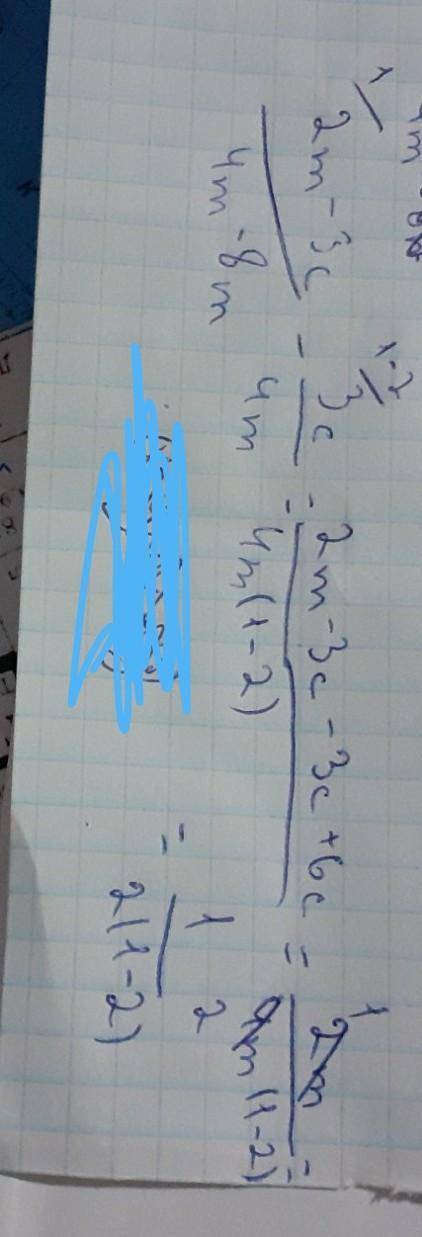 4m
(2m - 3c)/(4m - 8m) - 3c/4m = (2m - 3c - 3c + 6c)/(4m(1-2)) = 2m/(4m(1-2)) =
= 1/(2(1-2))